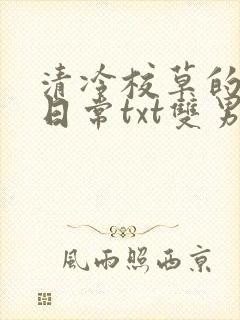 清冷校草的
日常txt雙男
風雨照西京